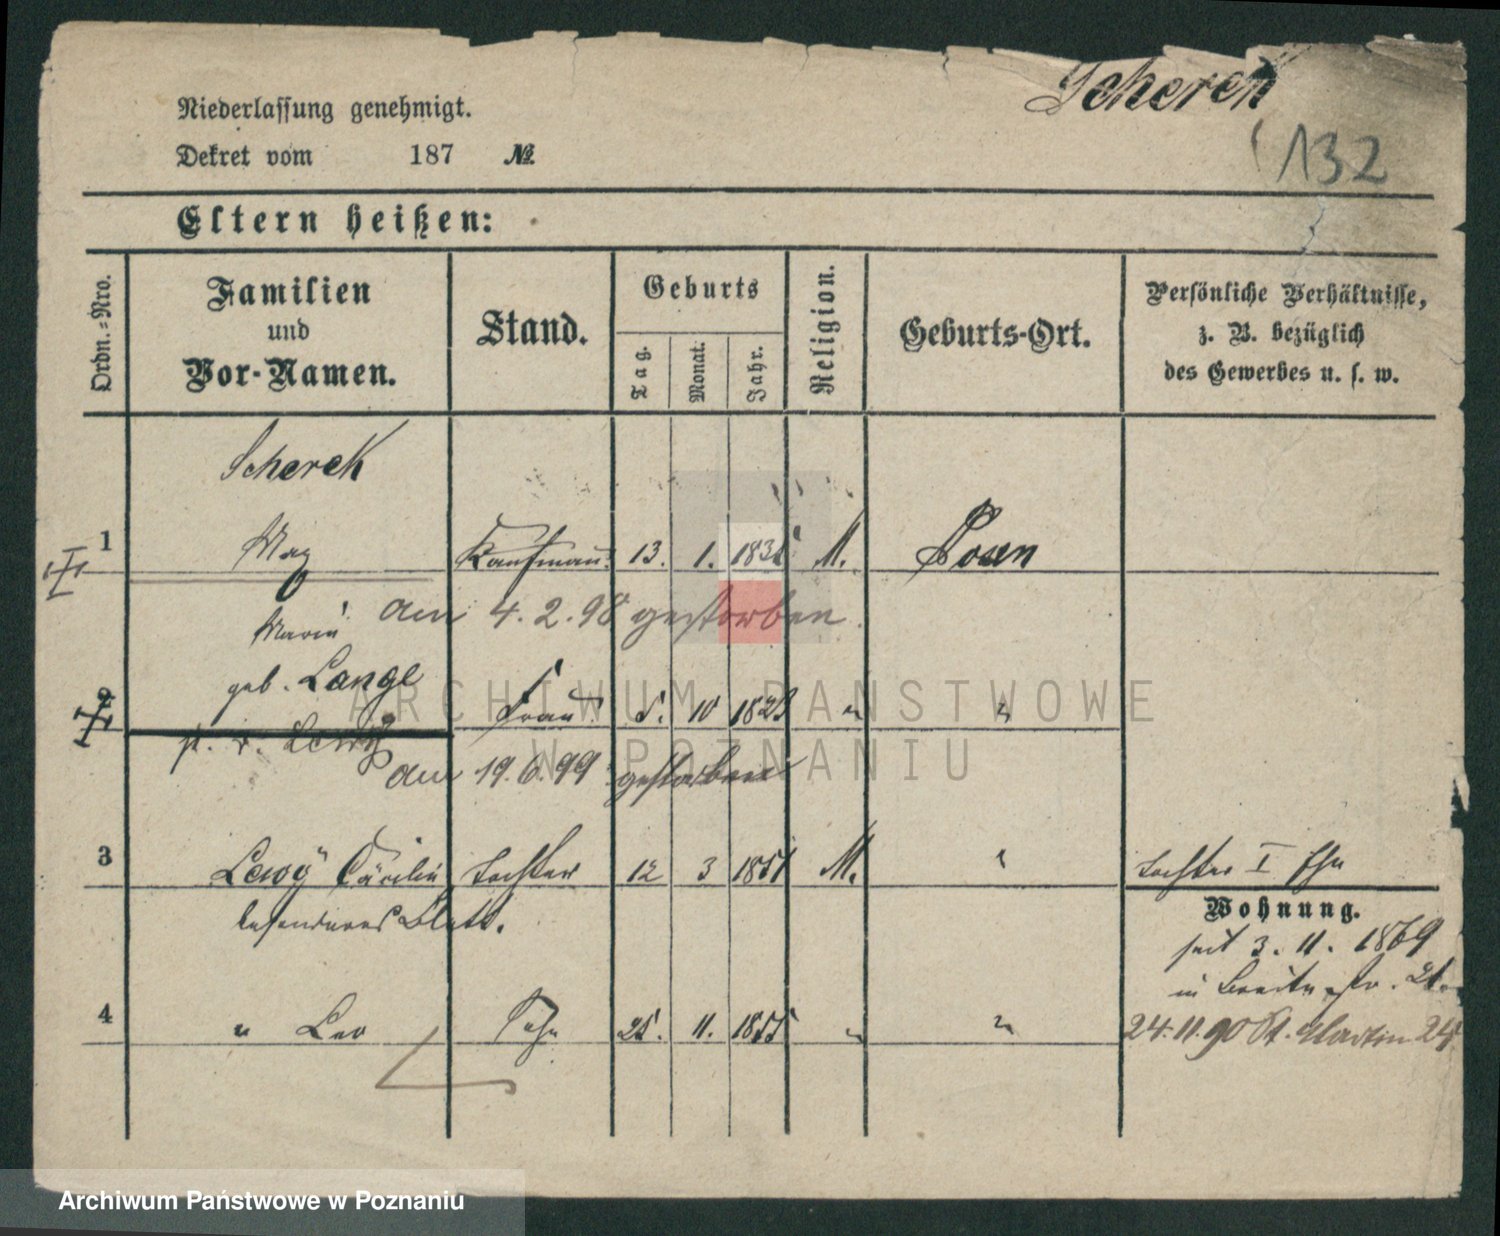 Scherek
132
Niederlassung genehmigt.
Dekret vom 187 №
Eltern heißen:
Ordn.-Nro.
Familien
und
Vor-Namen.
Stand.
Geburts
Tag.
Monat.
Jahr.
Religion.
Geburts-Ort.
Persönliche Verhältnisse,
z. B. bezüglich
des Gewerbes u. s. w.
Scherek
1 Max Kaufmann 13. 1. M. Posen
am 4.2.98 gestorben.
Marie
geb. Lange
2 Frau 5. 10 1823 " "
Lewy
am 19.6.99 gestorben
3 Lewy Cäcilie Tochter 12 3 1851 M. " Tochter I Ehe
besonderes Blatt.
Wohnung.
seit 3. 11. 1869
in Breitestr. 21.
4 " Leo Sohn 25. 11. 1855 " "
24.11.90 St. Martin 24
ARCHIWUM PAŃSTWOWE
W POZNANIU
Archiwum Państwowe w Poznaniu